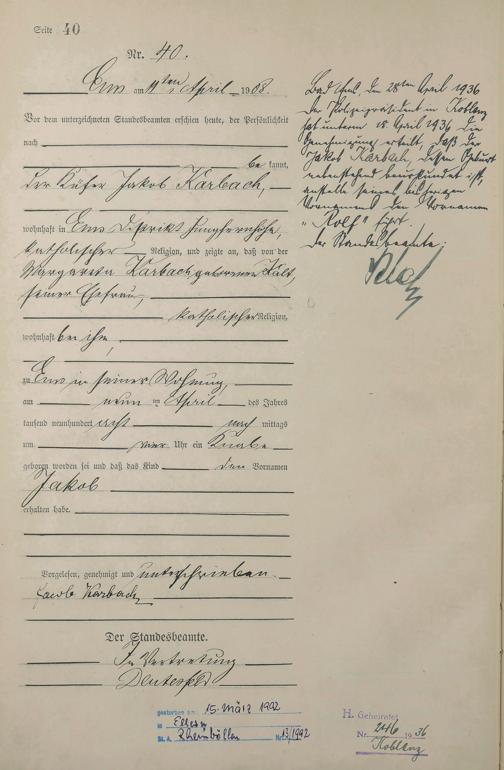 Seite 40
Nr. 40.
Ems am 11ten April 1908.
Vor dem unterzeichneten Standesbeamten erschien heute, der Persönlichkeit
nach
be kannt,
der Küfer Jakob Karbach,
wohnhaft in Ems Distrikt Jungfernhöhe,
katholischer Religion, und zeigte an, daß von der
Margareta Karbach geborenen Kalt,
seiner Ehefrau,
katholischer Religion,
wohnhaft bei ihm,
zu Ems in seiner Wohnung,
am neun ten April des Jahres
tausend neunhundert acht nach mittags
um vier Uhr ein Knabe
geboren worden sei und daß das Kind den Vornamen
Jakob
erhalten habe.
Vorgelesen, genehmigt und unterschrieben.
Jacob Karbach
Der Standesbeamte.
In Vertretung
Bad Ems, den 28ten April 1936
Der Polizeipräsident in Koblenz
hat unterm 15. April 1936 die
Genehmigung erteilt, daß der
Jakob Karbach, dessen Geburt
nebenstehend beurkundet ist,
anstelle seines bisherigen
Vornamens den Vornamen
"Rolf" führt.
Der Standesbeamte:
gestorben am 15. März 1992
in Ellern
St. A. Rheinböllen Nr. 13/1992
H. Geheiratet
Nr. 246 1936
Koblenz